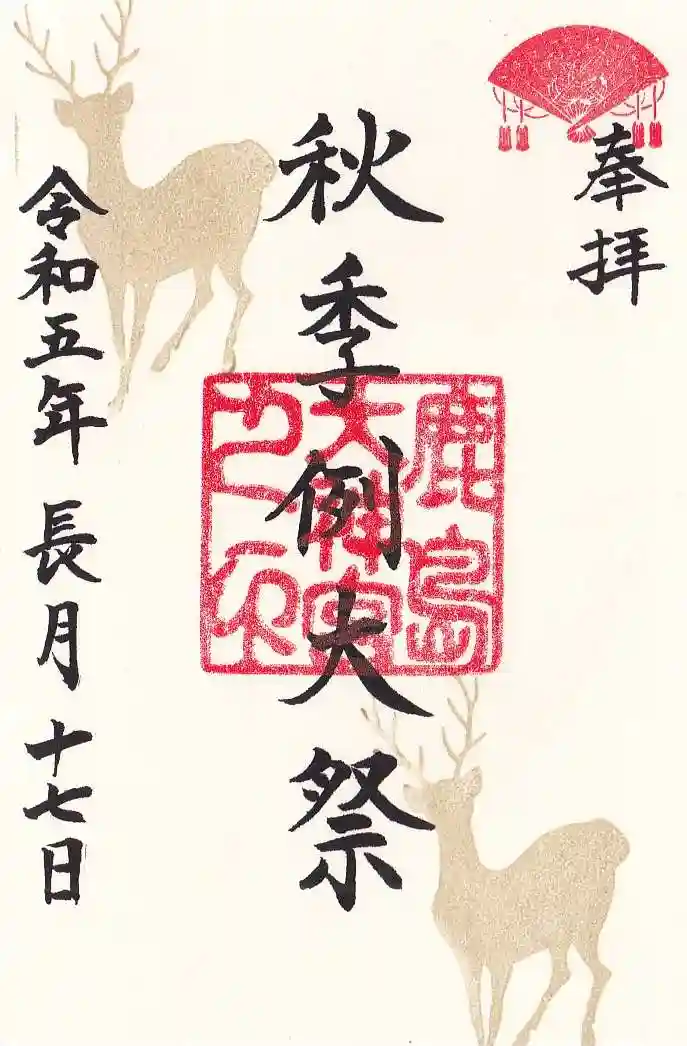 奉拝
秋季例大祭
鹿島
大神宮
之印
令和五年 長月 十七日